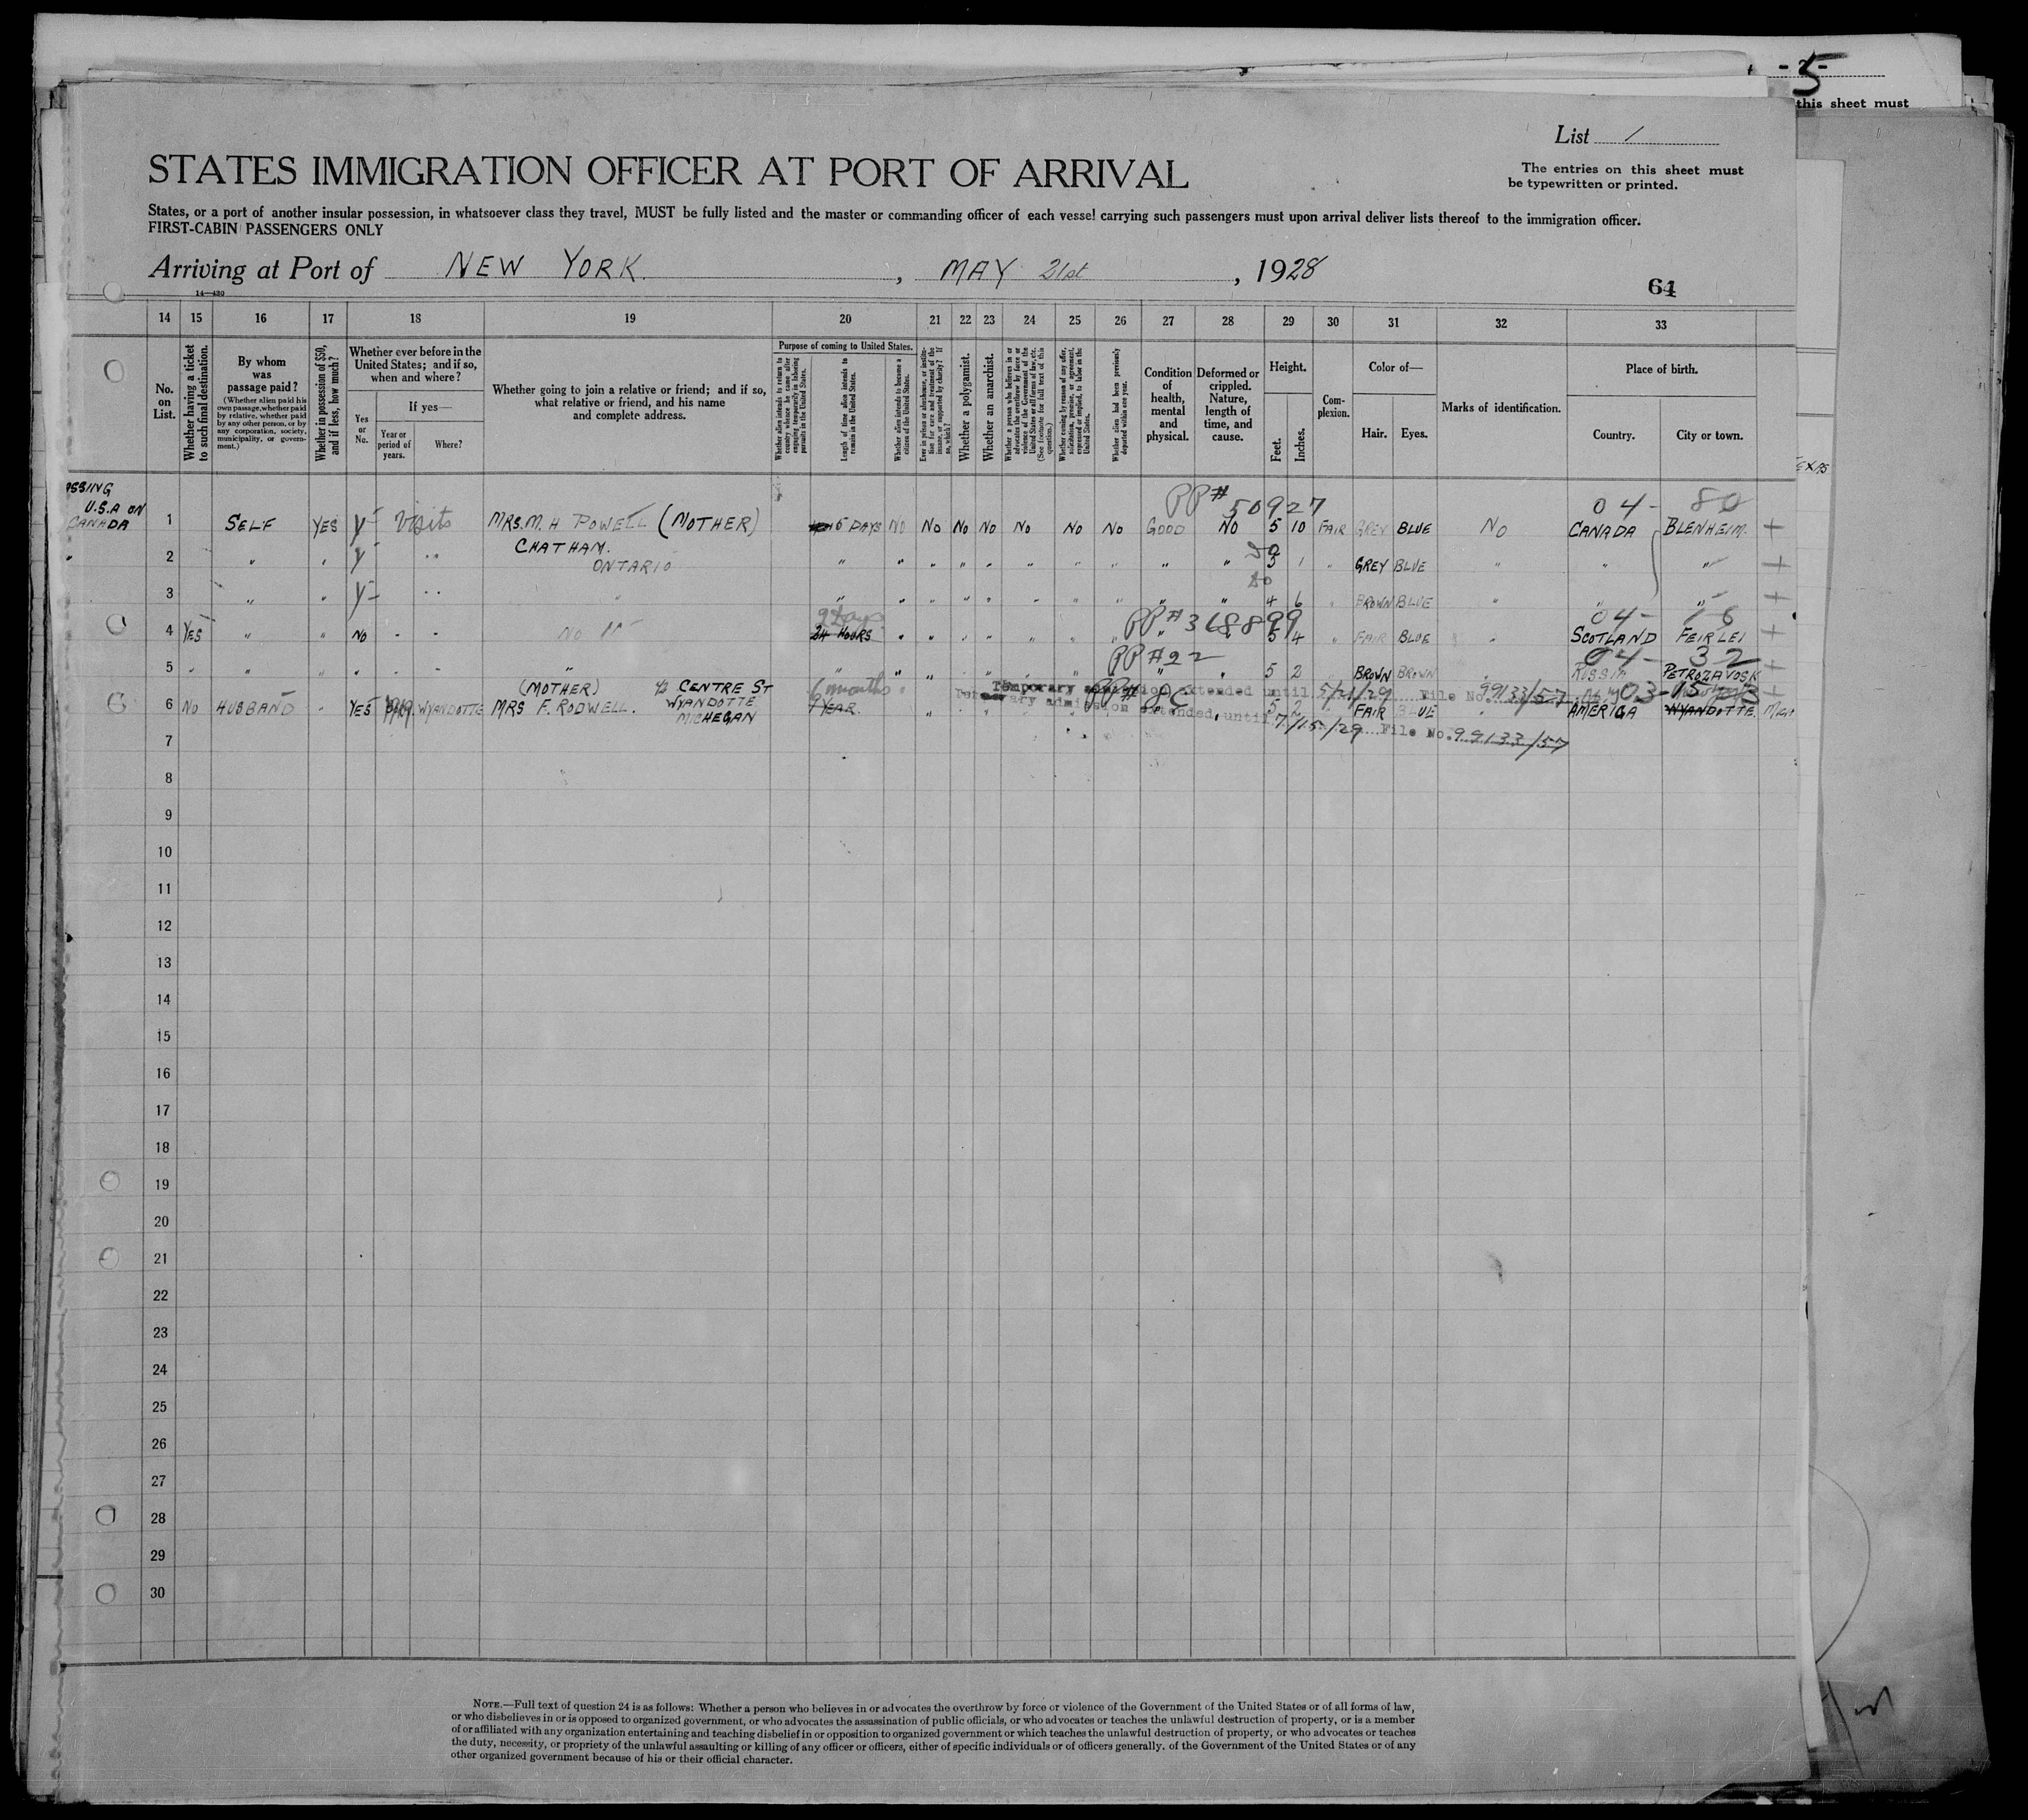 - 5 -
this sheet must
List 1
STATES IMMIGRATION OFFICER AT PORT OF ARRIVAL
The entries on this sheet must
be typewritten or printed.
States, or a port of another insular possession, in whatsoever class they travel, MUST be fully listed and the master or commanding officer of each vessel carrying such passengers must upon arrival deliver lists thereof to the immigration officer.
FIRST-CABIN PASSENGERS ONLY
Arriving at Port of NEW YORK, MAY 21st, 1928
14—430
64
14 15 16 17 18 19 20 21 22 23 24 25 26 27 28 29 30 31 32 33
No. on List.
Whether having a ticket to such final destination.
By whom was passage paid?
(Whether alien paid his own passage, whether paid by relative, whether paid by any other person, or by any corporation, society, municipality, or government.)
Whether in possession of $50, and if less, how much?
Whether ever before in the United States; and if so, when and where?
Yes or No.
If yes—
Year or period of years.
Where?
Whether going to join a relative or friend; and if so, what relative or friend, and his name and complete address.
Purpose of coming to United States.
Whether alien intends to return to country whence he came after engaging temporarily in laboring pursuits in the United States.
Length of time alien intends to remain in the United States.
Whether alien intends to become a citizen of the United States.
Ever in prison or almshouse, or institution for care and treatment of the insane, or supported by charity? If so, which?
Whether a polygamist.
Whether an anarchist.
Whether a person who believes in or advocates the overthrow by force or violence of the Government of the United States or all forms of law, etc. (See footnote for full text of this question.)
Whether coming by reason of any offer, solicitation, promise, or agreement, expressed or implied, to labor in the United States.
Whether alien had been previously deported within one year.
Condition of health, mental and physical.
Deformed or crippled. Nature, length of time, and cause.
Height.
Feet.
Inches.
Complexion.
Color of—
Hair.
Eyes.
Marks of identification.
Place of birth.
Country.
City or town.
U.S.A ON
CANADA
PP# 50927
04- 80
1 SELF YES Y Visits MRS. M. H POWELL (MOTHER) 5 DAYS NO NO NO NO NO NO NO GOOD NO 5 10 FAIR GREY BLUE NO CANADA BLENHEIM. +
2 " " Y " CHATHAM. ONTARIO " " " " " " " " " " 5 1 " GREY BLUE " " " +
3 " " Y " " " " " " " " " " " 4 6 " BROWN BLUE " " " +
2 days PP# 368899 04-
4 YES " " NO - - NO 24 HOURS " " " " " " " " " 5 4 " FAIR BLUE " SCOTLAND FEIRLEI +
PP #22 04- 32
5 " " " - - " " " " " " " " " " 5 2 BROWN BROWN " RUSSIA PETROZAVOSK +
(MOTHER) 42 CENTRE ST 6 months
Temporary admission extended until 5/21/29 File No. 99133/57
6 NO HUSBAND " YES 1919 WYANDOTTE MRS F. RODWELL. WYANDOTTE MICHEGAN 1 YEAR 5 2 FAIR BLUE AMERICA WYANDOTTE. Mich
Temporary admission extended until 7/15/29 File No. 99133/57
7
8
9
10
11
12
13
14
15
16
17
18
19
20
21
22
23
24
25
26
27
28
29
30
NOTE.—Full text of question 24 is as follows: Whether a person who believes in or advocates the overthrow by force or violence of the Government of the United States or of all forms of law,
or who disbelieves in or is opposed to organized government, or who advocates the assassination of public officials, or who advocates or teaches the unlawful destruction of property, or is a member
of or affiliated with any organization entertaining and teaching disbelief in or opposition to organized government or which teaches the unlawful destruction of property, or who advocates or teaches
the duty, necessity, or propriety of the unlawful assaulting or killing of any officer or officers, either of specific individuals or of officers generally, of the Government of the United States or of any
other organized government because of his or their official character.